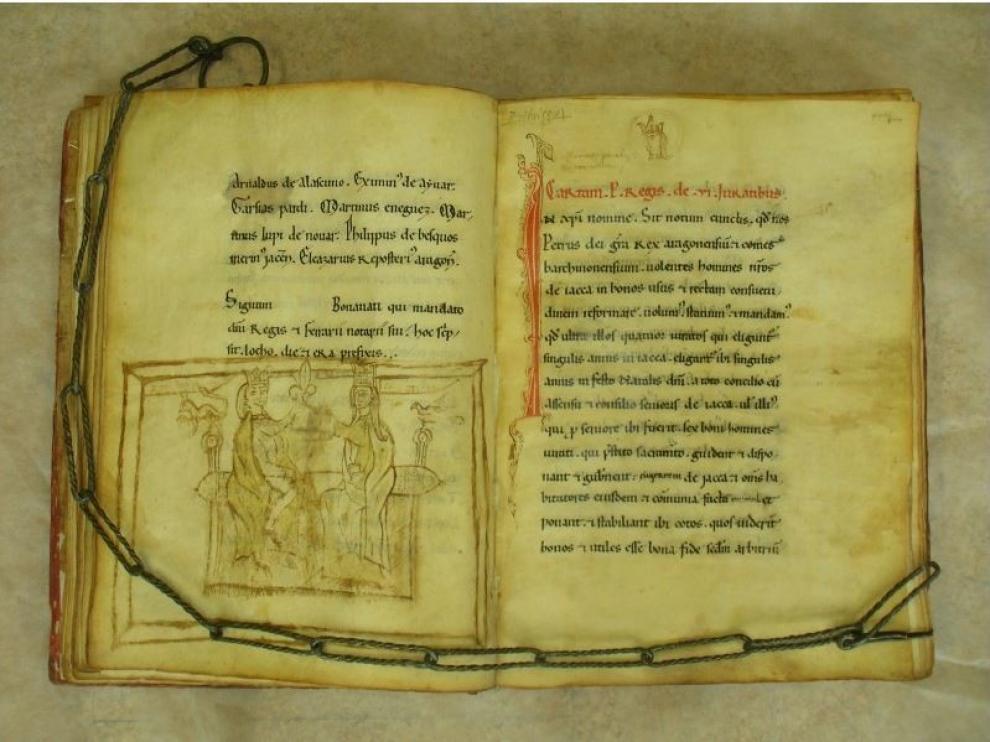 Arnaldus de Alascuno. Eximin᾿ de aẏuar.
Garsias pardi. Martinus eneguez. Mar
tinus lupi de nouar. Philippus de besquos
merin᾿ jaccen̄. Eleazarius Reposteri᾿ aragon̄.
Signum Bonanati qui mandato
dn̄i Regis ⁊ ferrarii notarii sui. hoc sc̄p
sit. locho. die ⁊ era prefixis..
Cartam. P. Regis. de. vi. Juratibus.
N xp̄i nomine. Sit notum cunctis. qd̄ nos
Petrus dei gr̄a Rex aragonensiū ⁊ comes
barchinonensium. uolentes homines nr̄os
de iacca in bonos usus ⁊ rectam consuetu
dinem reformare. uolum᾿. statuim᾿ ⁊ mandam᾿.
qd̄ ultra illos quatuor iuratos qui eligunt᾿
singulis annis in iacca. eligant᾿ ibi singulis
annis in festo Natalis dn̄i. a toto concilio cū
assensu ⁊ consilio senioris de iacca. ul᾿ illi᾿
qui p̱ seniore ibi fuerit. sex boni homines
iurati. qui p̄stito sacram̄to. guident ⁊ dispo
nant ⁊ gub̄nent de jacca ⁊ om̄s ha
bitatores eiusdem ⁊ com̄unia facta et
ponant. ⁊ stabiliant ibi cotos. quos uiderit᾿
bonos ⁊ utiles esse bona fide scd̄m arbitriū